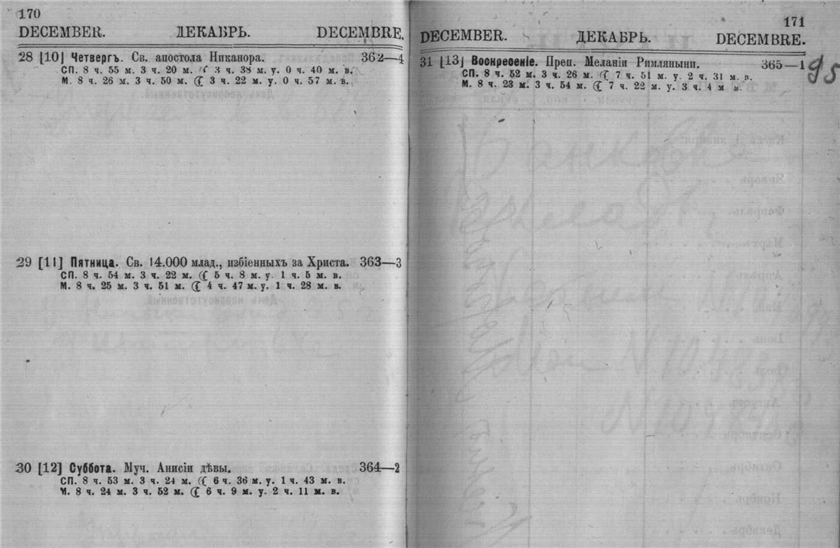 170
DECEMBER. ДЕКАБРЬ. DECEMBRE.
28 [10] Четвергъ. Св. апостола Никанора. 362—4
СП. 8 ч. 55 м. 3 ч. 20 м. ☾ 3 ч. 38 м. у. 0 ч. 40 м. в.
М. 8 ч. 26 м. 3 ч. 50 м. ☾ 3 ч. 22 м. у. 0 ч. 57 м. в.
29 [11] Пятница. Св. 14.000 млад., избіенныхъ за Христа. 363—3
СП. 8 ч. 54 м. 3 ч. 22 м. ☾ 5 ч. 8 м. у. 1 ч. 5 м. в.
М. 8 ч. 25 м. 3 ч. 51 м. ☾ 4 ч. 47 м. у. 1 ч. 28 м. в.
30 [12] Суббота. Муч. Анисіи дѣвы. 364—2
СП. 8 ч. 53 м. 3 ч. 24 м. ☾ 6 ч. 36 м. у. 1 ч. 43 м. в.
М. 8 ч. 24 м. 3 ч. 52 м. ☾ 6 ч. 9 м. у. 2 ч. 11 м. в.
171
DECEMBER. ДЕКАБРЬ. DECEMBRE.
31 [13] Воскресеніе. Преп. Меланіи Римляныни. 365—1 95
СП. 8 ч. 52 м. 3 ч. 26 м. ☾ 7 ч. 51 м. у. 2 ч. 31 м. в.
М. 8 ч. 23 м. 3 ч. 54 м. ☾ 7 ч. 22 м. у. 3 ч. 4 м в.